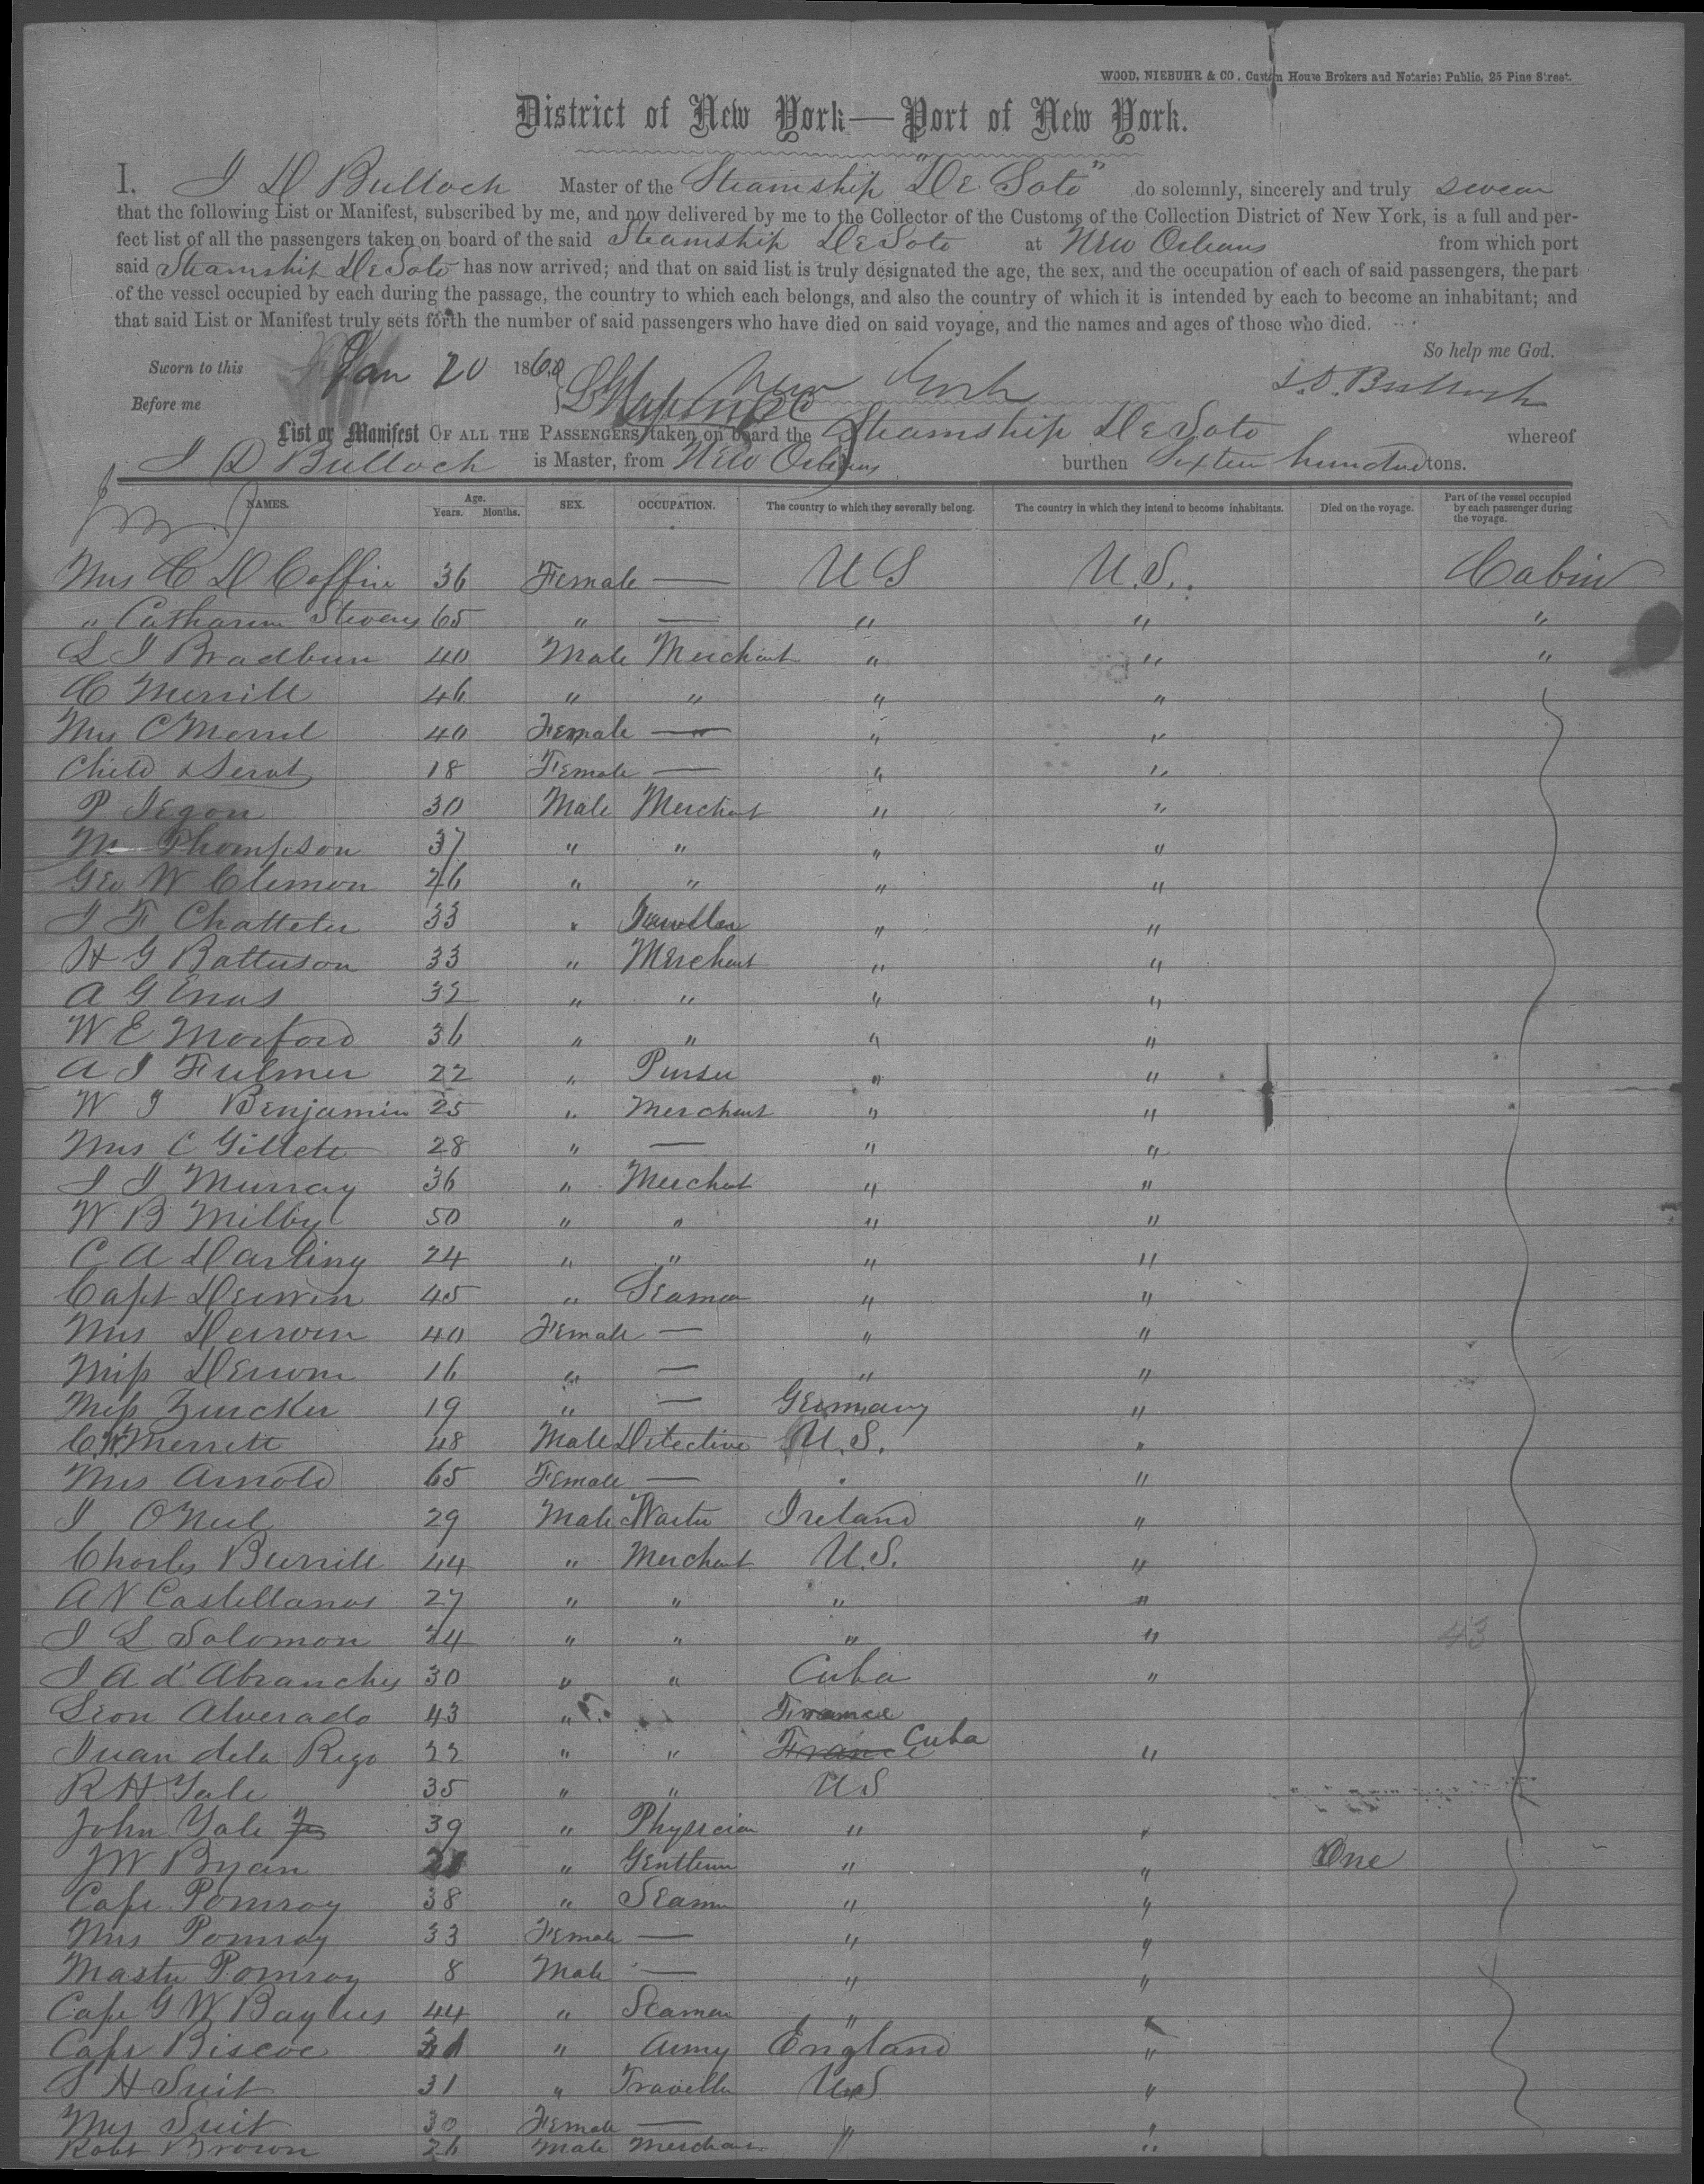 WOOD, NIEBUHR & CO., Custom House Brokers and Notaries Public, 25 Pine Street.
District of New York—Port of New York.
I. J D Bulloch Master of the Steamship "De Soto" do solemnly, sincerely and truly swear
that the following List or Manifest, subscribed by me, and now delivered by me to the Collector of the Customs of the Collection District of New York, is a full and per-
fect list of all the passengers taken on board of the said Steamship De Soto at New Orleans from which port
said Steamship De Soto has now arrived; and that on said list is truly designated the age, the sex, and the occupation of each of said passengers, the part
of the vessel occupied by each during the passage, the country to which each belongs, and also the country of which it is intended by each to become an inhabitant; and
that said List or Manifest truly sets forth the number of said passengers who have died on said voyage, and the names and ages of those who died.
So help me God.
Sworn to this Jan 20 1860 New York J. D. Bulloch
Before me
List or Manifest OF ALL THE PASSENGERS taken on board the Steamship De Soto whereof
J D Bulloch is Master, from New Orleans burthen Sixteen hundred tons.
NAMES. Age. Years. Months. SEX. OCCUPATION. The country to which they severally belong. The country in which they intend to become inhabitants. Died on the voyage. Part of the vessel occupied by each passenger during the voyage.
Mrs C D Coffin 36 Female — U S U.S. Cabin
" Catharine Stevens 65 " — " " "
L J Bradburn 40 Male Merchant " " "
C Merrill 46 " " " "
Mrs C Merrel 40 Female — " "
Child & Servt 18 Female — " "
P. Segon 30 Male Merchant " "
M Thompson 37 " " " "
Geo W Clemon 26 " " " "
J F Chatteter 33 " Traveller " "
H G Batterson 33 " Merchant " "
A G Enas 32 " " " "
W E Morford 36 " " " "
A J Fulmer 22 " Purser " "
W J Benjamin 25 " Merchant " "
Mrs C Gillete 28 " — " "
J J Murray 36 " Merchant " "
W B Milby 50 " " " "
C A Darling 24 " " " "
Capt Derwin 45 " Seaman " "
Mrs Derwin 40 Female — " "
Miss Derwin 16 " — " "
Miss Zurcker 19 " — Germany "
C W Merrett 48 Male Detective U.S. "
Mrs Arnold 65 Female — " "
J O'Neil 29 Male Waiter Ireland "
Charles Burrill 44 " Merchant U.S. "
A N Castellanos 27 " " " "
J L Solomon 24 " " " " 43
J A d'Abranches 30 " " Cuba "
Leon Alverado 43 " France
Juan dela Rego 22 " " France Cuba "
R H Yale 35 " " U S
John Yale Jr 39 " Physician " "
J W Ryan " Gentleman " " One
Capt Pomroy 38 " Seaman " "
Mrs Pomroy 33 Female — " "
Master Pomroy 8 Male — " "
Capt G W Baylies 44 " Seaman " "
Capt Biscoe 31 " Army England "
S H Suit 31 " Traveller U.S "
Mrs Suit 30 Female — " "
Robt Brown 26 Male Merchant " "